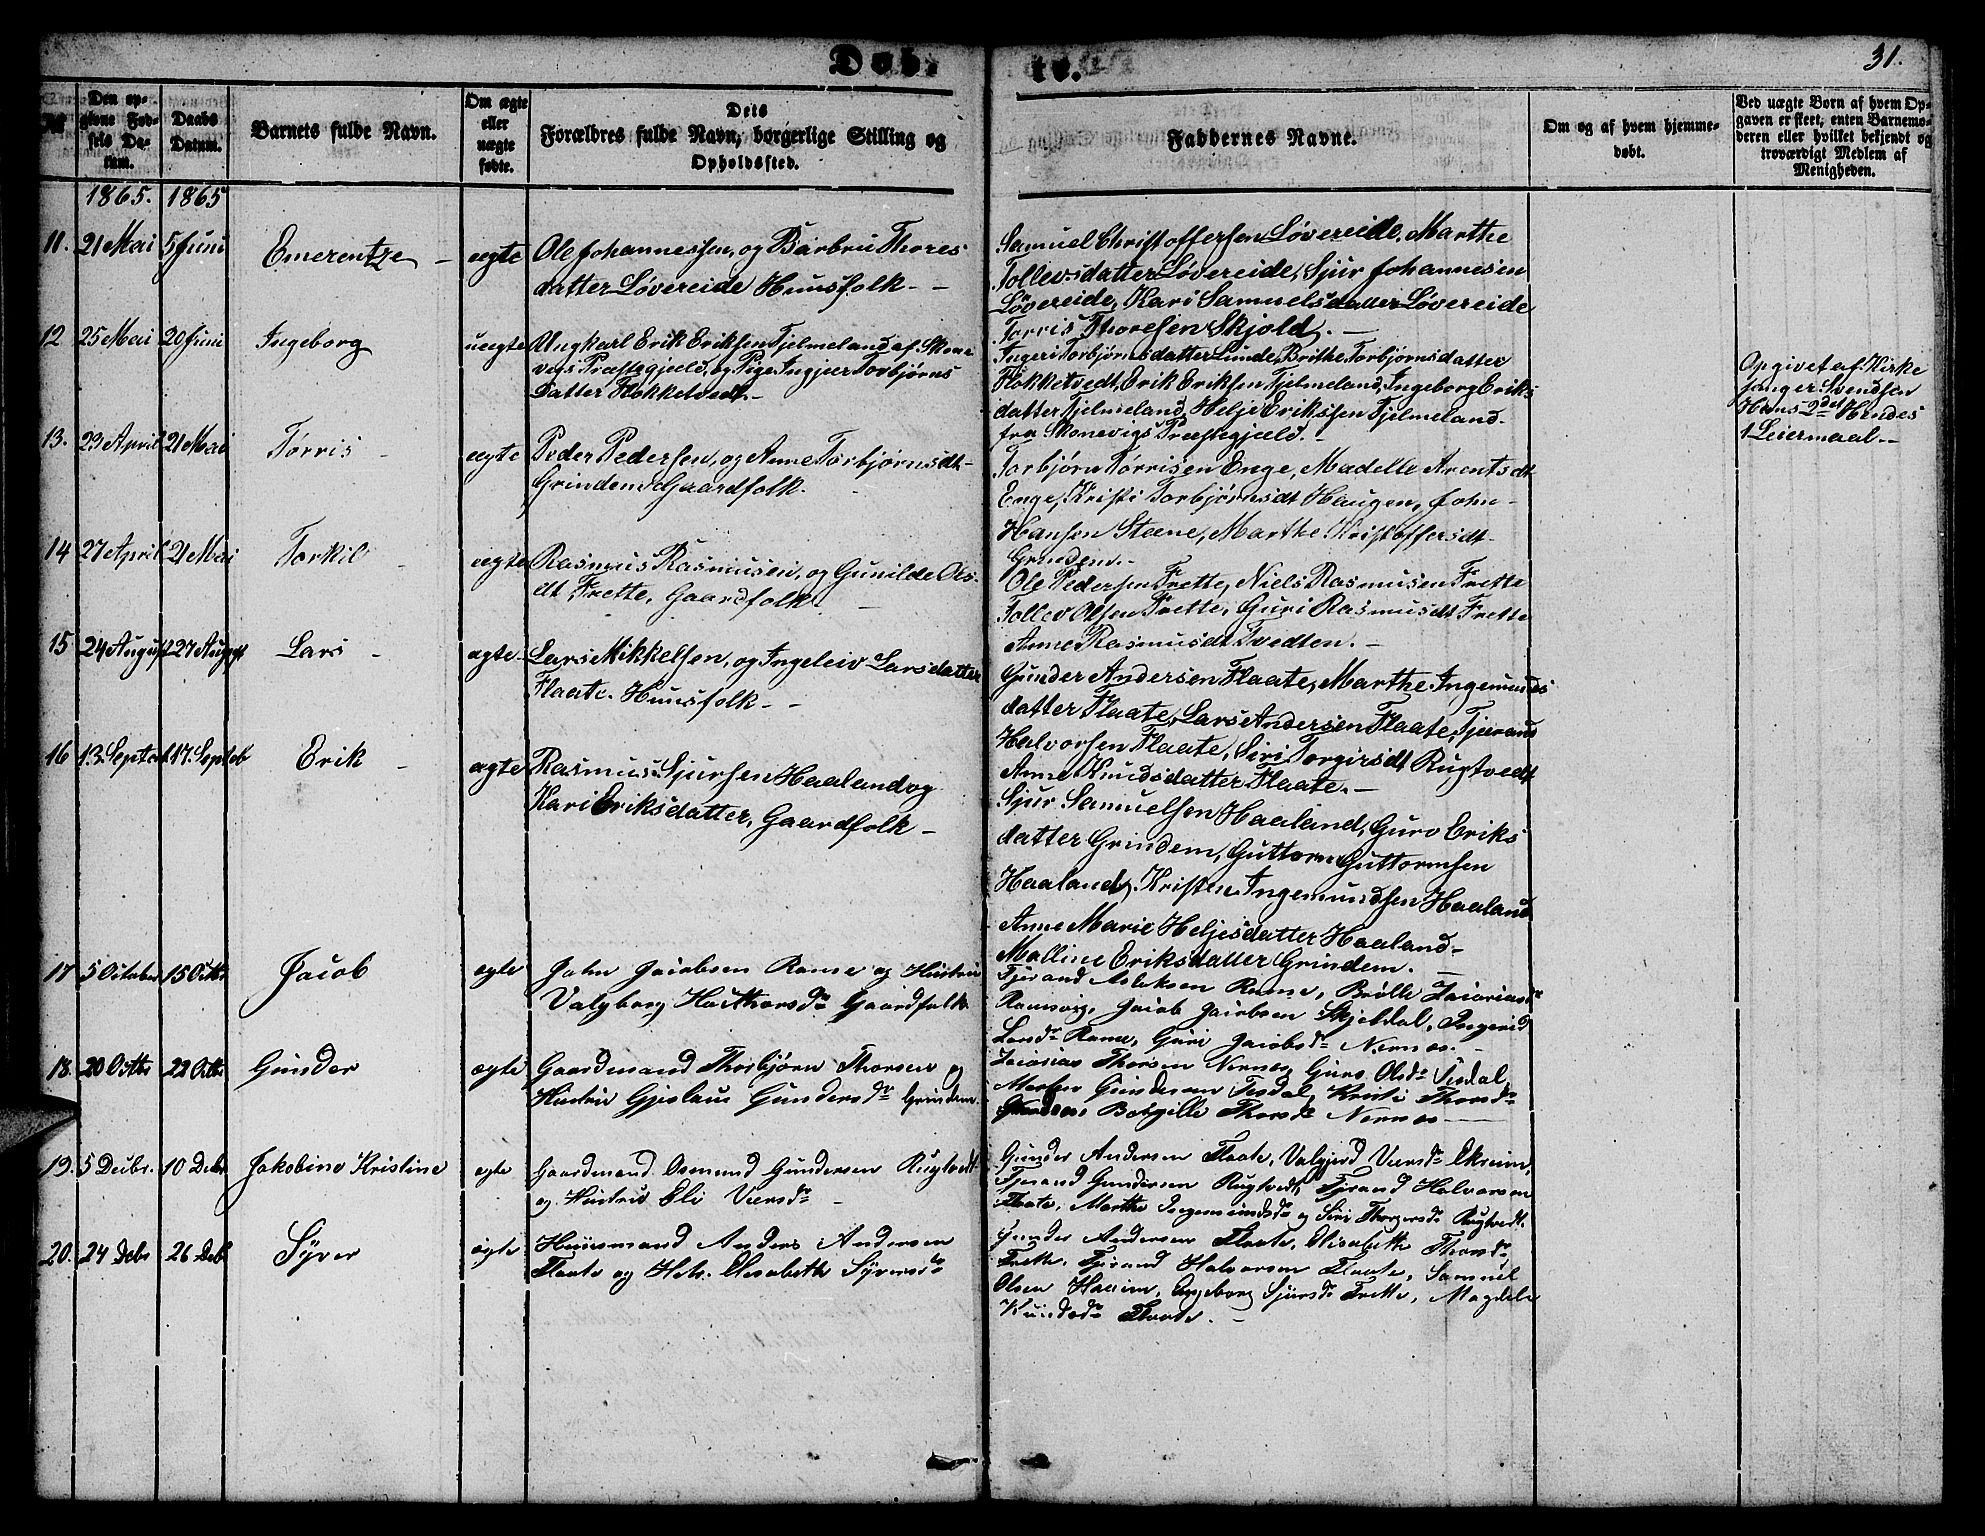 Døb-
te.
31.
№
Den op-
givne Fød-
sels Da-
tum.
Daabs
Datum.
Barnets fulde Navn.
Om ægte
eller
uægte
fødte.
Dets
Forældres fulde Navn, borgerlige Stilling og
Opholdssted.
Faddernes Navne.
Om og af hvem hjemme-
døbt.
Ved uægte Børn af hvem Op-
gaven er skeet, enten Barnemo-
deren eller hvilket bekjendt og
troværdigt Medlem af
Menigheden.
1865. 1865
11. 21 Mai 5 Juni Emerentze - ægte
Ole Johannessen, og Barbru Thores
datter Løvereide Huusfolk - -
Samuel Christoffersen Løvereide, Marthe
Tollevsdatter Løvereide, Sjur Johannesen
Løvereide, Kari Samuelsdatter Løvereide
Torris Thoresen Skjold. -
12 25 Mai 20 Juni Ingeborg uægte
Ungkarl Erik Eriksen Fjelmeland af Skone
vigs Præstegjeld, og Pige Ingjær Torbjørns
Datter Flokketvedt. -
Ingeri Torbjørnsdatter Lunde, Brithe Torbjørnsdatter
Flokketvedt, Erik Eriksen Fjelmeland, Ingeborg Eriks
datter Fjelmeland, Helje Erikssen Fjelmeland
fra Skonevigs Præstegjæld. -
Opgivet af Kirke
sanger Svendsen
Hans 2det Hendes
1 Leiermaal. -
13. 23 April 21 Mai Tørris - ægte
Peder Pedersen, og Anne Torbjørnsdt-
Grindem Gaardfolk.
Torbjørn Tørrisen Enge, Madelle Arentsdt
Enge, Kristi Torbjørnsdt Haugen, John
Hansen Stene, Marthe Kristoffersdt-
Grindem. -
14 27 April 21 Mai Torkil - ægte
Rasmus Rasmusen, og Gunilde Ols-
dt Frette, Gaardfolk. -
Ole Pedersen Frette, Niels Rasmusen Frette
Tollev Olsen Frette, Guri Rasmusdt Frette
Anne Rasmusdt Tvedten. -
15 24 August 27 August Lars - ægte
Lars Mikkelsen, og Ingeleiv Larsdatter
Flaate. Huusfolk - -
Gunder Andersen Flaate, Marthe Ingemunds
datter Flaate, Lars Andersen Flaate, Tjeran
Halvorsen Flaate, Siri Torgirsdt Rugtvedt
Anne Knudsdatter Flaate. -
16 13 Septeb 17 Septeb Erik - ægte
Rasmus Sjursen Haaland og
Kari Eriksdatter, Gaardfolk -
Sjur Samuelsen Haaland, Guro Eriks
datter Grindem, Guttorm Guttormsen
Haaland, Kristen Ingemundsen Haaland
Anne Marie Heljesdatter Haaland -
Malline Eriksdatter Grindem. -
17 5 October 15 Octbr Jacob ægte
John Jacobsen Rame og Hustru
Valgborg Hacthorsdr Gaardfolk
Tjerand Aslaksen Rame, Brölle Zacariasdr
Ramsvig, Jacob Jacobsen Skjeldal, Ingerid
Larsdr Rame, Guri Jacobsdr Nernes. -
18. 20 Octbr 22 Octbr Gunder ægte
Gaardmand Thorbjørn Thorsen og
Hustru Gjeslaug Gundersdr Grindem.
Zacarias Thorsen Nernes, Guro Olsdr Tesdal,
Morten Gundersen Tesdal, Kristi Thorsdr
Grindem, Bolgille Thorsdr Nernes
19. 5 Decbr. 10 Decbr Jakobine Kristine ægte
Gaardmand Osmund Gundersen Rugtvedt
og Hustru Eli Veersdr -
Gunder Andersen Flaate, Valgjerd Veersdr Ekreim,
Tjerand Gundersen Rugtvedt, Tjerand Halvorsen
Flaate, Marthe Ingemundsdr og Siri Thorgersdr Rugtvedt.
20. 24 Debr 26 Deb Syver ægte
Huusmand Anders Andersen
Flaate og Hstr. Elesabethe Syversdr
Gunder Andersen Flaate, Elisabeth Thorsdr
Frette, Tjerand Halvorsen Flaate, Samuel
Olsen Hareim, Engeborg Sjursdr Frette, Magdele
Knudsdr Flaate. -